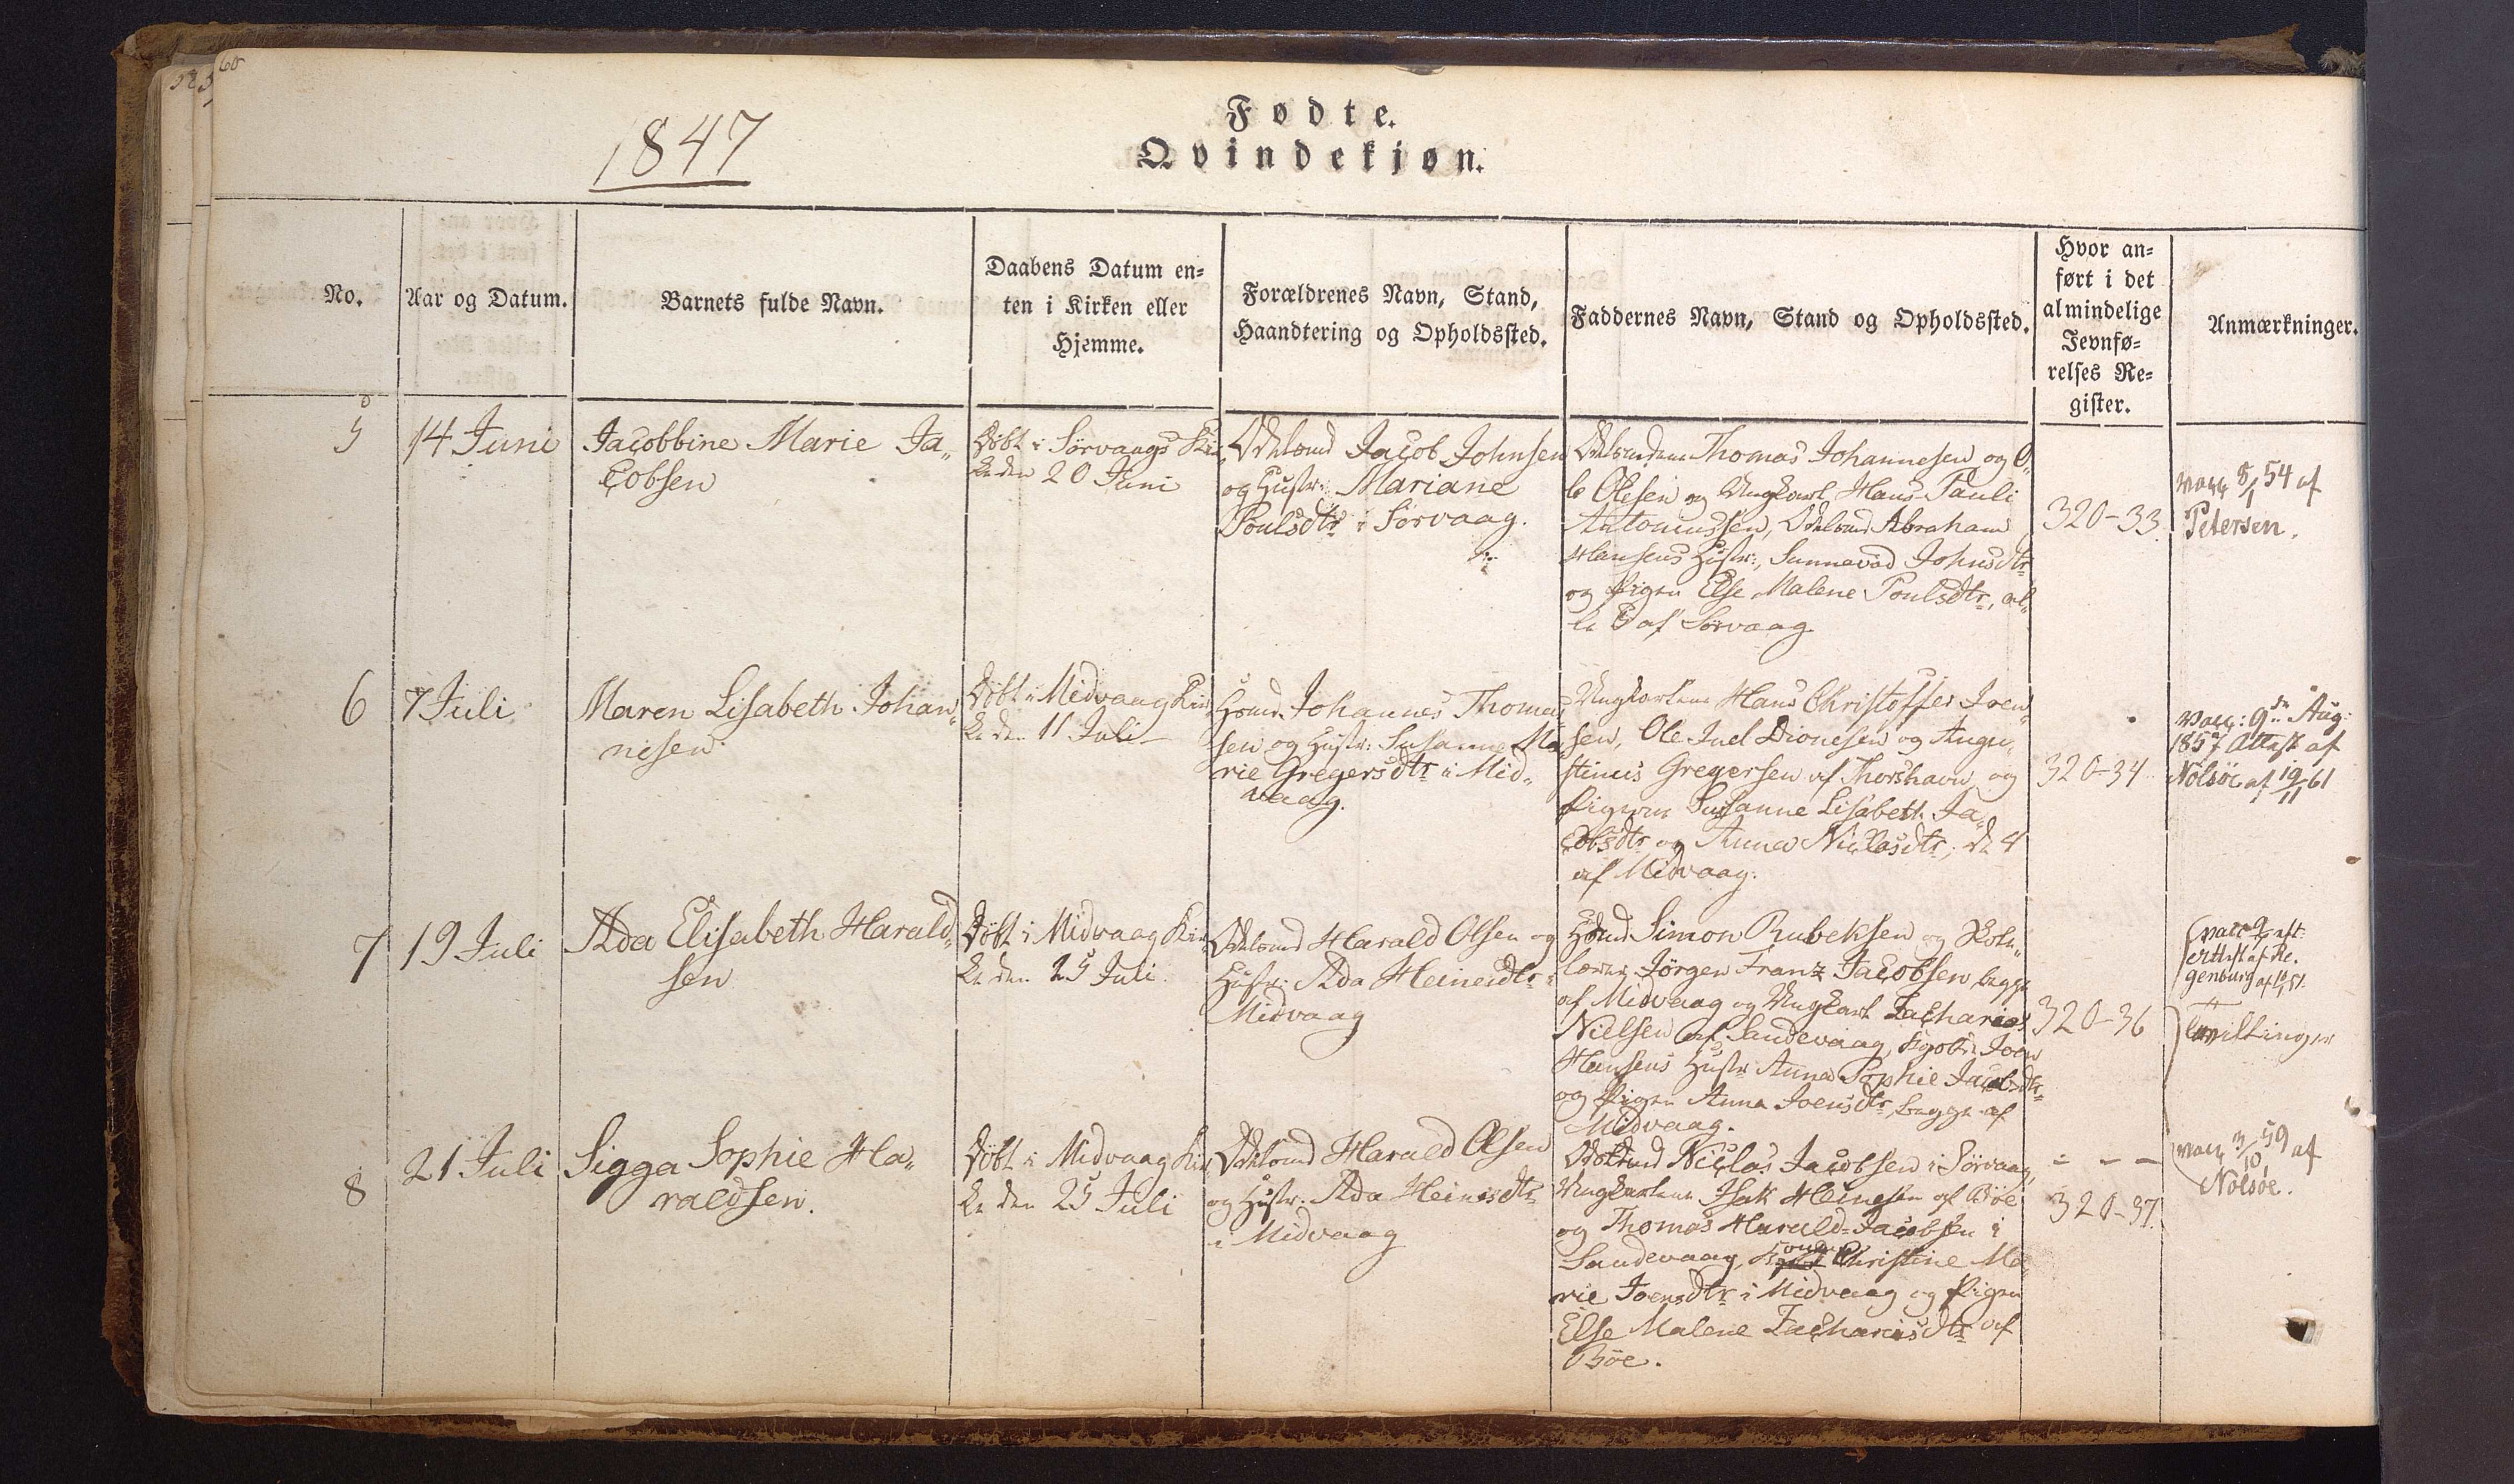 60
1847
Fødte.
Qvindekjøn.
No.
Aar og Datum.
Barnets fulde Navn.
Daabens Datum en-
ten i Kirken eller
Hjemme.
Forældrenes Navn, Stand,
Haandtering og Opholdssted.
Faddernes Navn, Stand og Opholdssted.
Hvor an-
ført i det
almindelige
Jevnfø-
relses Re-
gister.
Anmærkninger.
5
14 Juni
Jacobbine Marie Ja„
cobsen
Døbt i Sørvaags Kir„
ke den 20 Juni
Odelsmd Jacob Johnsen
og Hustr: Mariane
Poulsdtr i Sørvaag.
Odelsmdene Thomas Johannesen og O„
le Olesen og Ungkarl Hans Pauli
Antoniussen, Odelsmd Abraham
Hansens Hustr:, Sunnevad Johnsdtr
og Pigen Else Malene Poulsdtr, al„
le 5 af Sørvaag
320-33.
Vacc 8/1 54 af
Petersen.
6
7 Juli
Maren Lisabeth Johan„
nesen
Døbt i Midvaag Kir„
ke den 11 Juli
Johannes Thomas„
sen og Hustr: Susanne Ma„
rie Gregersdtr i Mid„
vaag.
Ungkarlene Hans Christoffer Joen„
sen, Ole Juel Dionesen og Augu„
stinus Gregersen af Thorshavn og
Pigerne Susanne Lisabeth Ja„
cobsdtr og Anna Niclasdtr, de 4
af Midvaag.
320-34
Vacc: 9de Aug:
1857 Attest af
Nolsöe af 19/11 61
7
19 Juli
Ada Elisabeth Harald„
sen
Døbt i Midvaag Kir„
ke den 25 Juli
Odelsmd Harald Olsen og
Hustr: Ada Heinesdtr i
Midvaag
Simon Rubeksen og Skole„
lærer Jörgen Franz Jacobsen begge
af Midvaag og Ungkarl Zacharias
Nielsen af Sandevaag, Joen
Hansens Hustr Anna Sophie Jacobsdtr
og Pigen Anna Joensdtr, begge af
Midvaag.
320-36
genburg af
Tvillinger
8
21 Juli
Sigga Sophie Ha„
raldsen.
Døbt i Midvaag Kir„
ke den 25 Juli
Odelsmd Harald Olsen
og Hustr: Ada Heinisdtr
i Midvaag
Odelsmd Niclas Jacobsen i Sörvaag,
Ungkarlene Isak Heinesen af Böe
og Thomas Harald Jacobsen i
Sandevaag, Christine Ma„
rie Joensdtr i Midvaag og Pigen
Else Malene Zachariasdtr af
Böe.
- - -
320-37.
Vacc 3/10 59 af
Nolsöe.